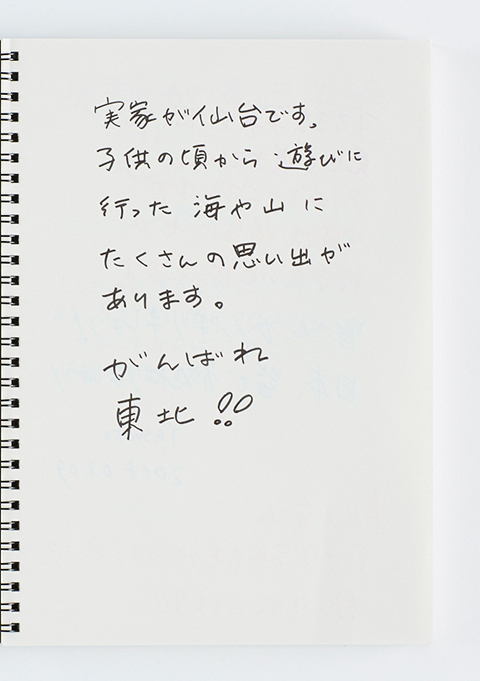 実家が仙台です。
子供の頃から遊びに
行った海や山に
たくさんの思い出が
あります。
がんばれ
東北!!